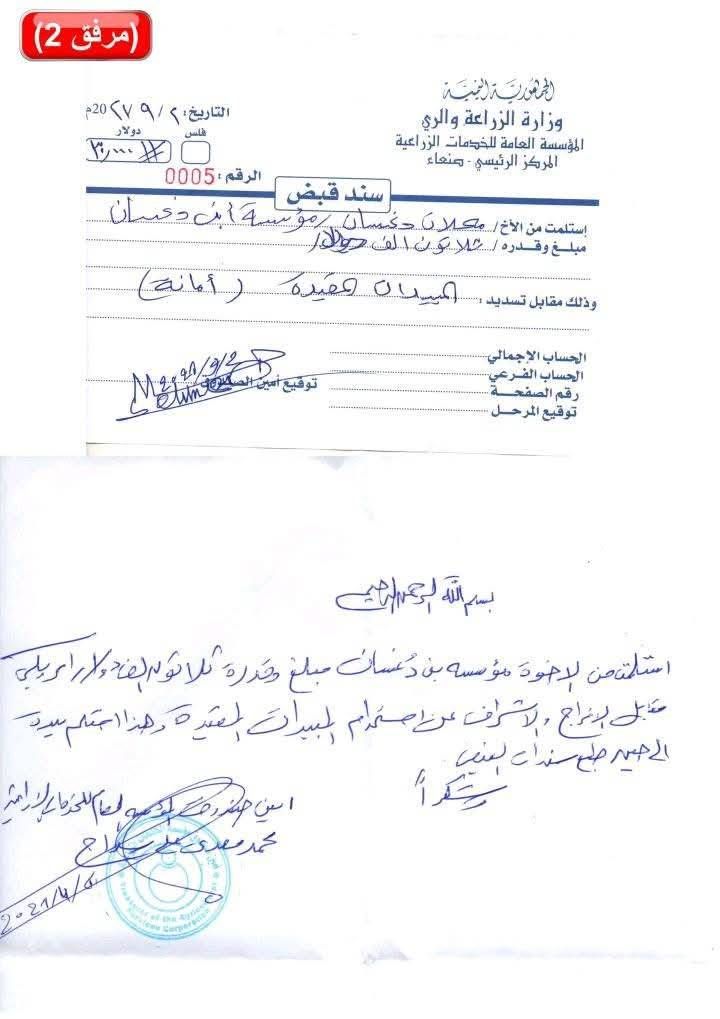 (مرفق 2)
الجمهورية اليمنية
وزارة الزراعة والري
المؤسسة العامة للخدمات الزراعية
المركز الرئيسي - صنعاء
التاريخ: ٢ / ٩ /
20
م
فلس
دولار
٣٠,٠٠٠
الرقم: 0005
سند قبض
إستلمت من الأخ / محلات دغسان / مؤسسة أبن دغسان
مبلغ وقدره / ثلاثون الف دولار
وذلك مقابل تسديد: المبيدات المقيدة (أمانة)
الحساب الإجمالي
الحساب الفرعي
رقم الصفحة
توقيع المرحل
توقيع أمين الصندوق
بسم الله الرحمن الرحيم
استلمت من الاخوة مؤسسه بن دغسان مبلغ وقدرة ثلاثون الف دولار امريكي
مقابل الافراج والاشراف عن استخدام المبيدات المقيدة وهذا استلام بيدة
الى حين طبع سندات القبض
وشكراً
امين صندوق المؤسسه العامه للخدمات الزراعية
محمد مهدي علي
Services Corporation